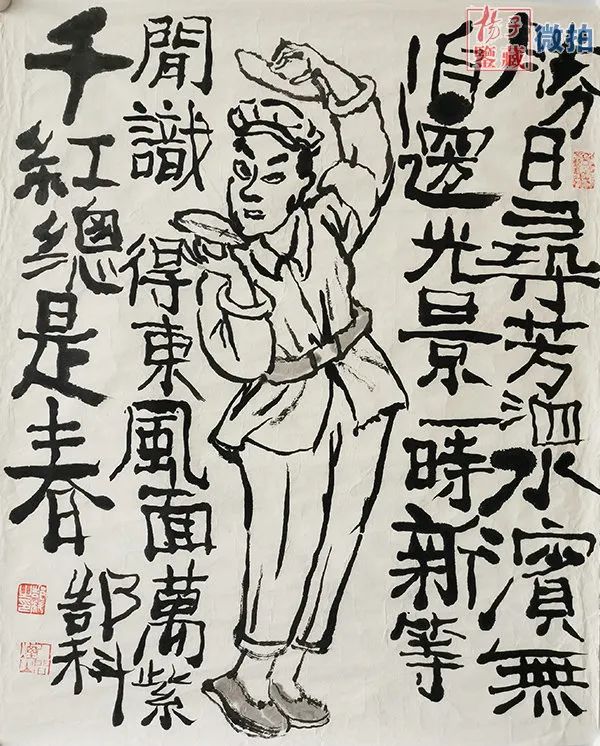 揚子鑒藏
微拍
勝日尋芳泗水濱無
邊光景一時新等
閒識得東風面萬紫
千紅總是春
郜科